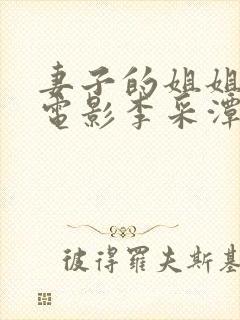 妻子的姐姐
電影李采潭
彼得羅夫斯基